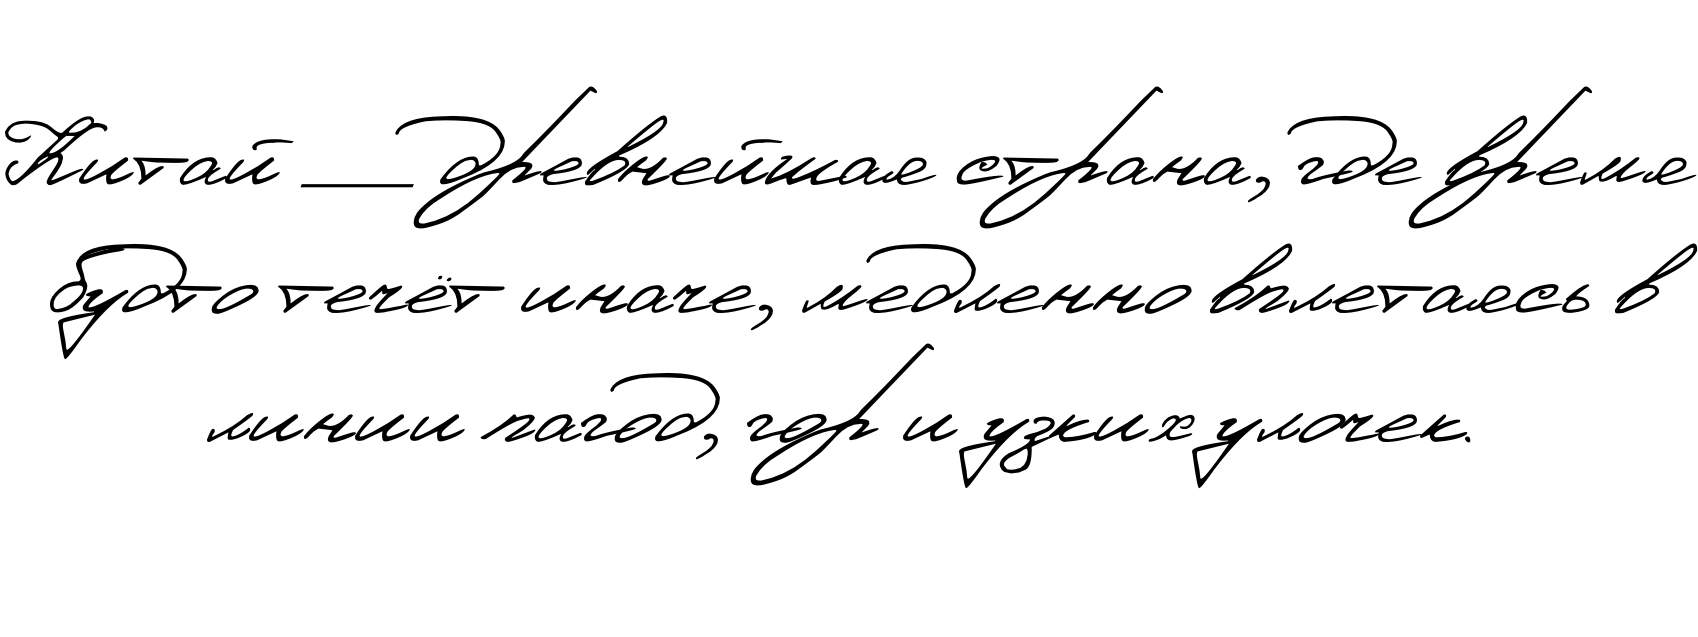 Китай — древнейшая страна, где время
будто течёт иначе, медленно вплетаясь в
линии пагод, гор и узких улочек.